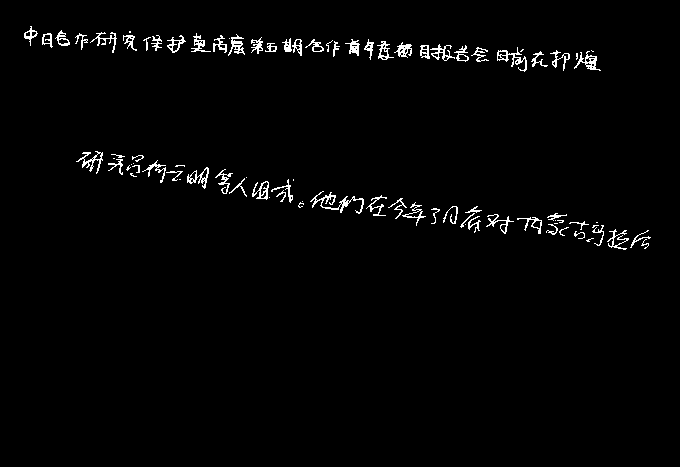 中日合作研究保护莫高窟第五期合作首年度项目报告会日前在敦煌
研究员何云明等人组成。他们在今年3月底对内蒙古乌拉后